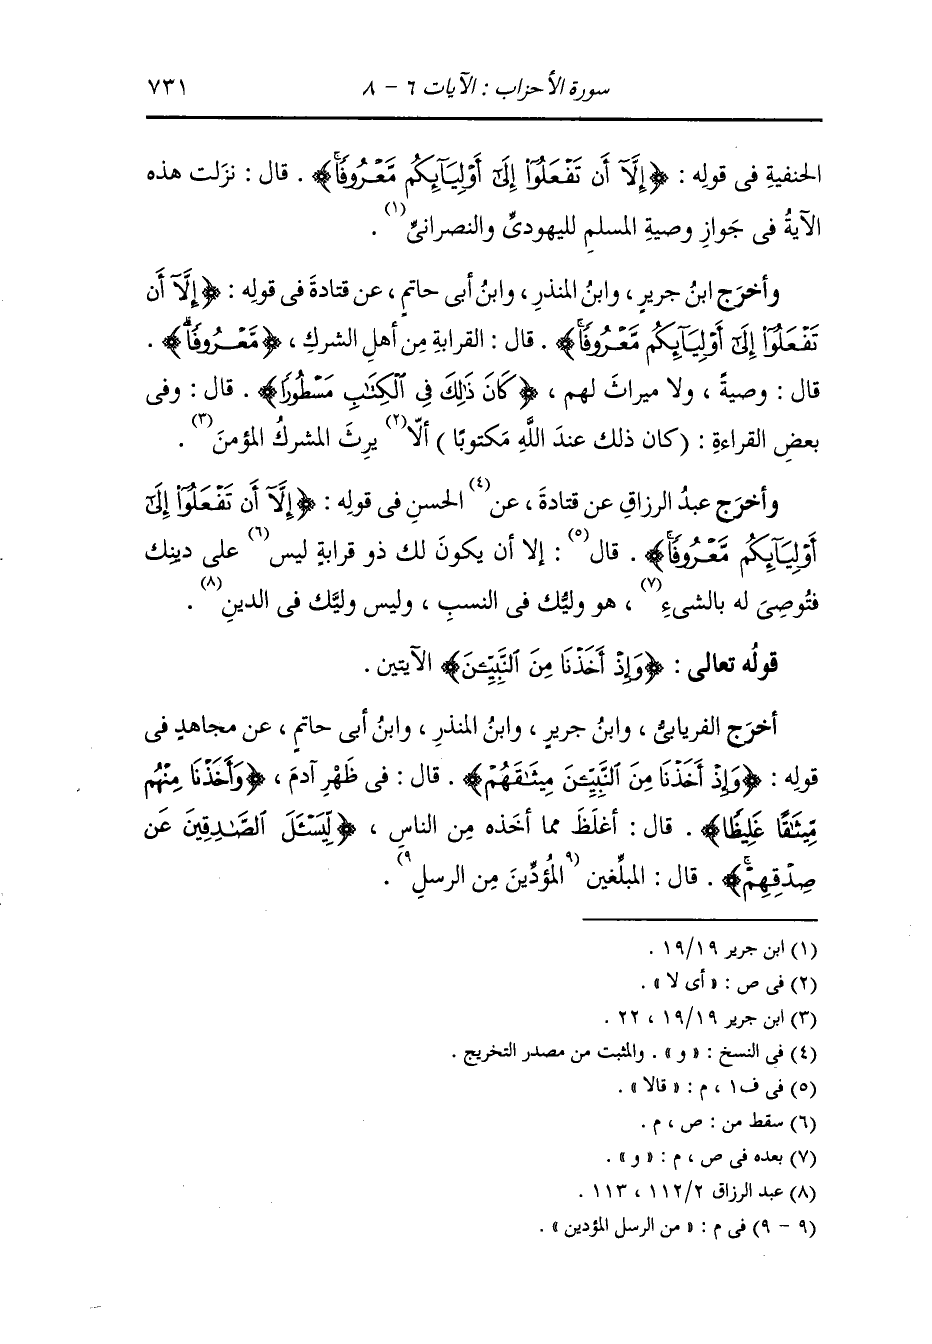 سورة الأحزاب : الآيات ٦ - ٨ ٧٣١
الحنفيةِ فى قولِه : ﴿إِلَّآ أَن تَفْعَلُوٓا۟ إِلَىٰٓ أَوْلِيَآئِكُم مَّعْرُوفًاۚ﴾ . قال : نزَلت هذه
الآيةُ فى جَوازِ وصيةِ المسلمِ لليهودىِّ والنصرانىِّ(١) .
وأخرَج ابنُ جريرٍ ، وابنُ المنذرِ ، وابنُ أبى حاتمٍ ، عن قتادةَ فى قولِه : ﴿إِلَّآ أَن
تَفْعَلُوٓا۟ إِلَىٰٓ أَوْلِيَآئِكُم مَّعْرُوفًاۚ﴾ . قال : القرابةِ مِن أهلِ الشركِ ، ﴿مَّعْرُوفًاۚ﴾ .
قال : وصيةً ، ولا ميراثَ لهم ، ﴿كَانَ ذَٰلِكَ فِى ٱلْكِتَٰبِ مَسْطُورًا﴾ . قال : وفى
بعضِ القراءةِ : ( كان ذلك عندَ اللَّهِ مَكتوبًا ) ألّا(٢) يرِثَ المشركُ المؤمنَ(٣) .
وأخرَج عبدُ الرزاقِ عن قتادةَ ، عن(٤) الحسنِ فى قولِه : ﴿إِلَّآ أَن تَفْعَلُوٓا۟ إِلَىٰٓ
أَوْلِيَآئِكُم مَّعْرُوفًاۚ﴾ . قال(٥) : إلا أن يكونَ لك ذو قرابةٍ ليس(٦) على دينِك
فتُوصِىَ له بالشىءِ(٧) ، هو وليُّك فى النسبِ ، وليس وليَّك فى الدينِ(٨) .
قولُه تعالى : ﴿وَإِذْ أَخَذْنَا مِنَ ٱلنَّبِيِّـۧنَ﴾ الآيتين .
أخرَج الفريابىُّ ، وابنُ جريرٍ ، وابنُ المنذرِ ، وابنُ أبى حاتمٍ ، عن مجاهدٍ فى
قولِه : ﴿وَإِذْ أَخَذْنَا مِنَ ٱلنَّبِيِّـۧنَ مِيثَٰقَهُمْ﴾ . قال : فى ظَهْرِ آدمَ ، ﴿وَأَخَذْنَا مِنْهُم
مِّيثَٰقًا غَلِيظًا﴾ . قال : أغلَظَ مما أخَذه مِن الناسِ ، ﴿لِّيَسْـَٔلَ ٱلصَّٰدِقِينَ عَن
صِدْقِهِمْۚ﴾ . قال : المبلِّغين (٩المُؤَدِّينَ مِن الرسلِ٩) .
(١) ابن جرير ١٩/١٩ .
(٢) فى ص : « أى لا » .
(٣) ابن جرير ١٩/١٩ ، ٢٢ .
(٤) فى النسخ : « و » . والمثبت من مصدر التخريج .
(٥) فى ف١ ، م : « قالا » .
(٦) سقط من : ص ، م .
(٧) بعده فى ص ، م : « و » .
(٨) عبد الرزاق ١١٢/٢ ، ١١٣ .
(٩ - ٩) فى م : « من الرسل المؤدين » .